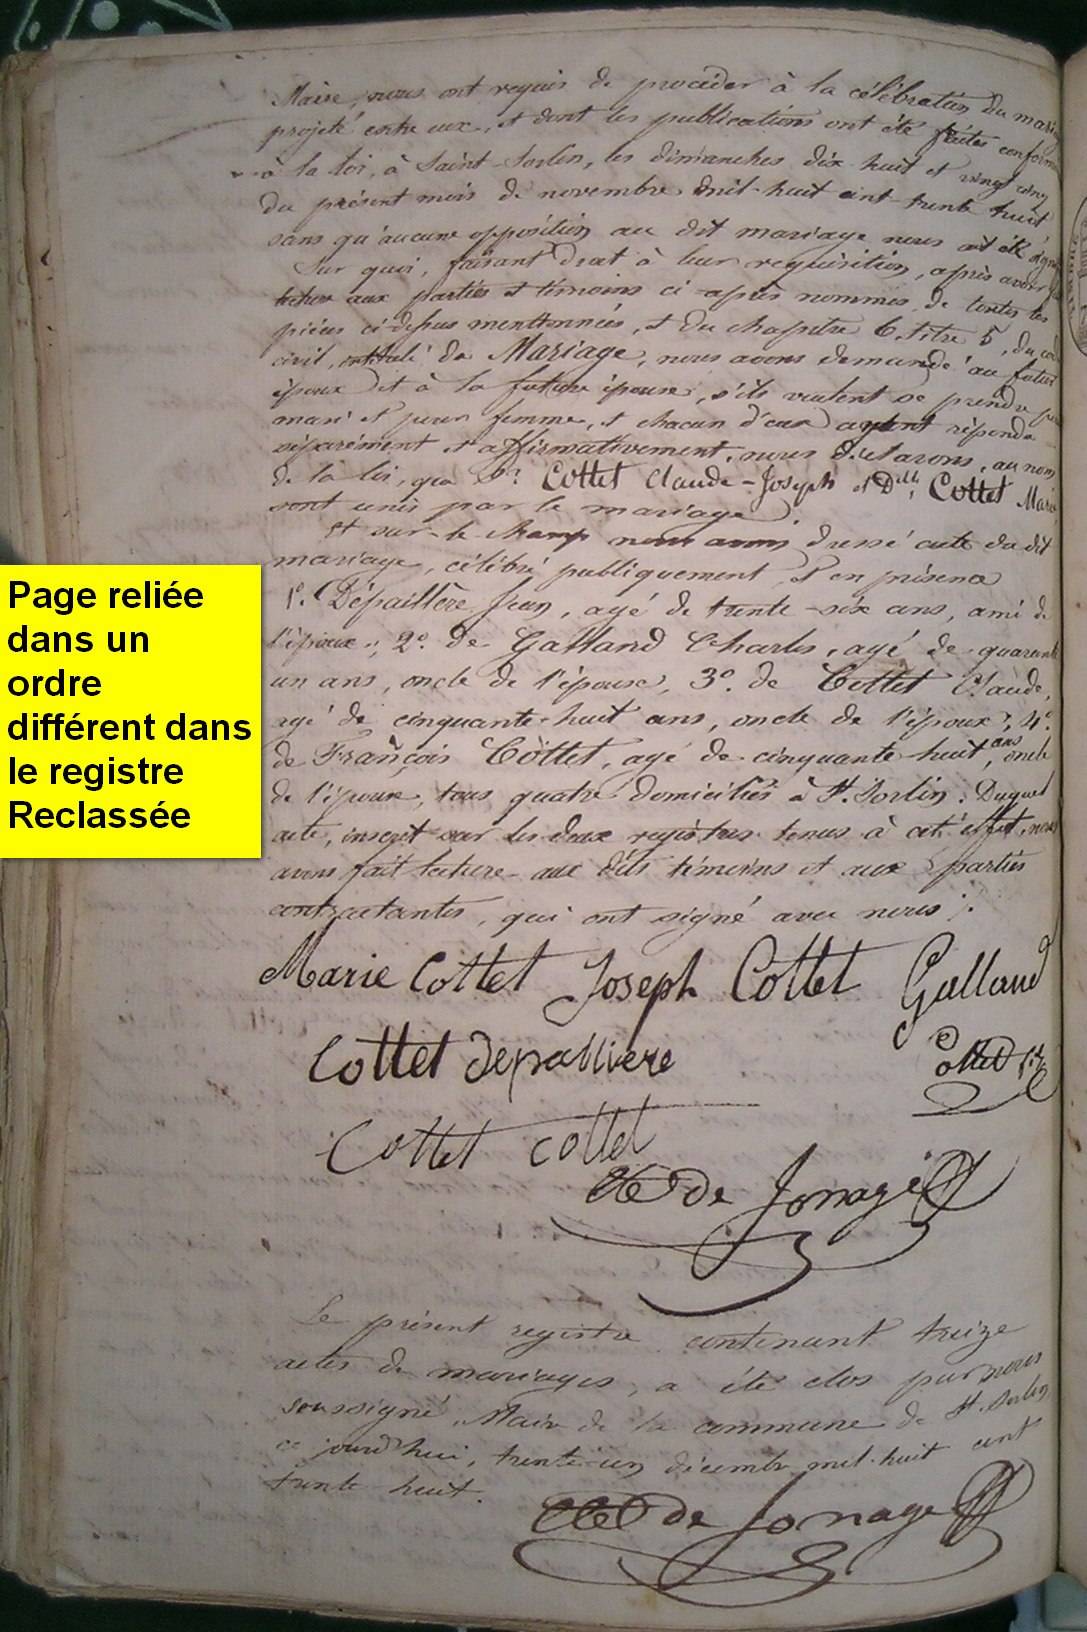 Maire, nous ont requis de procéder à la célébration du mari
projeté entre eux, et dont les publications ont été faites conform
à la loi, à Saint-Sorlin, les dimanches dix-huit et vingt cinq
du présent mois de novembre mil-huit cent trente huit
sans qu'aucune opposition au dit mariage nous ait été
Sur quoi, faisant droit à leur requisition, après avoir
lecture aux parties et témoins ci-après nommés, de toutes les
pièces ci-dessus mentionnées, et du chapitre 6, titre 5, du code
civil, intitulé du Mariage, nous avons demandé au futur
époux et à la future épouse, s'ils veulent se prendre pour
mari et pour femme, et chacun d'eux ayant répondu
séparément et affirmativement, nous déclarons, au nom
de la loi, que Sr. Cottet Claude-Joseph et Dlle. Cottet Marie
sont unis par le mariage.
Et sur-le champ nous avons dressé acte du dit
mariage, célébré publiquement, et en présence
1°. Dépaillère Jean, agé de trente-six ans, ami de
l'époux, 2°. de Galland Charles, agé de quarante
un ans, oncle de l'épouse, 3°. de Cottet Claude,
agé de cinquante-huit ans, oncle de l'époux, 4°.
de François Cottet, agé de cinquante-huit ans, oncle
de l'époux, tous quatre domiciliés à St. Sorlin. Duquel
acte, inscrit sur les deux registres tenus à cet effet, nous
avons fait lecture aux dits témoins et aux parties
contractantes, qui ont signé avec nous.
Marie Cottet Joseph Cottet Galland
Cottet depallliere Cottet
Cottet cottet
de Jonage
Page reliée
dans un
ordre
différent dans
le registre
Reclassée
Le présent registre contenant treize
actes de mariages, a été clos par nous
soussigné, Maire de la commune de St. Sorlin
ce jourd'hui, trente-un décembre mil-huit cent
trente huit.
de Jonage